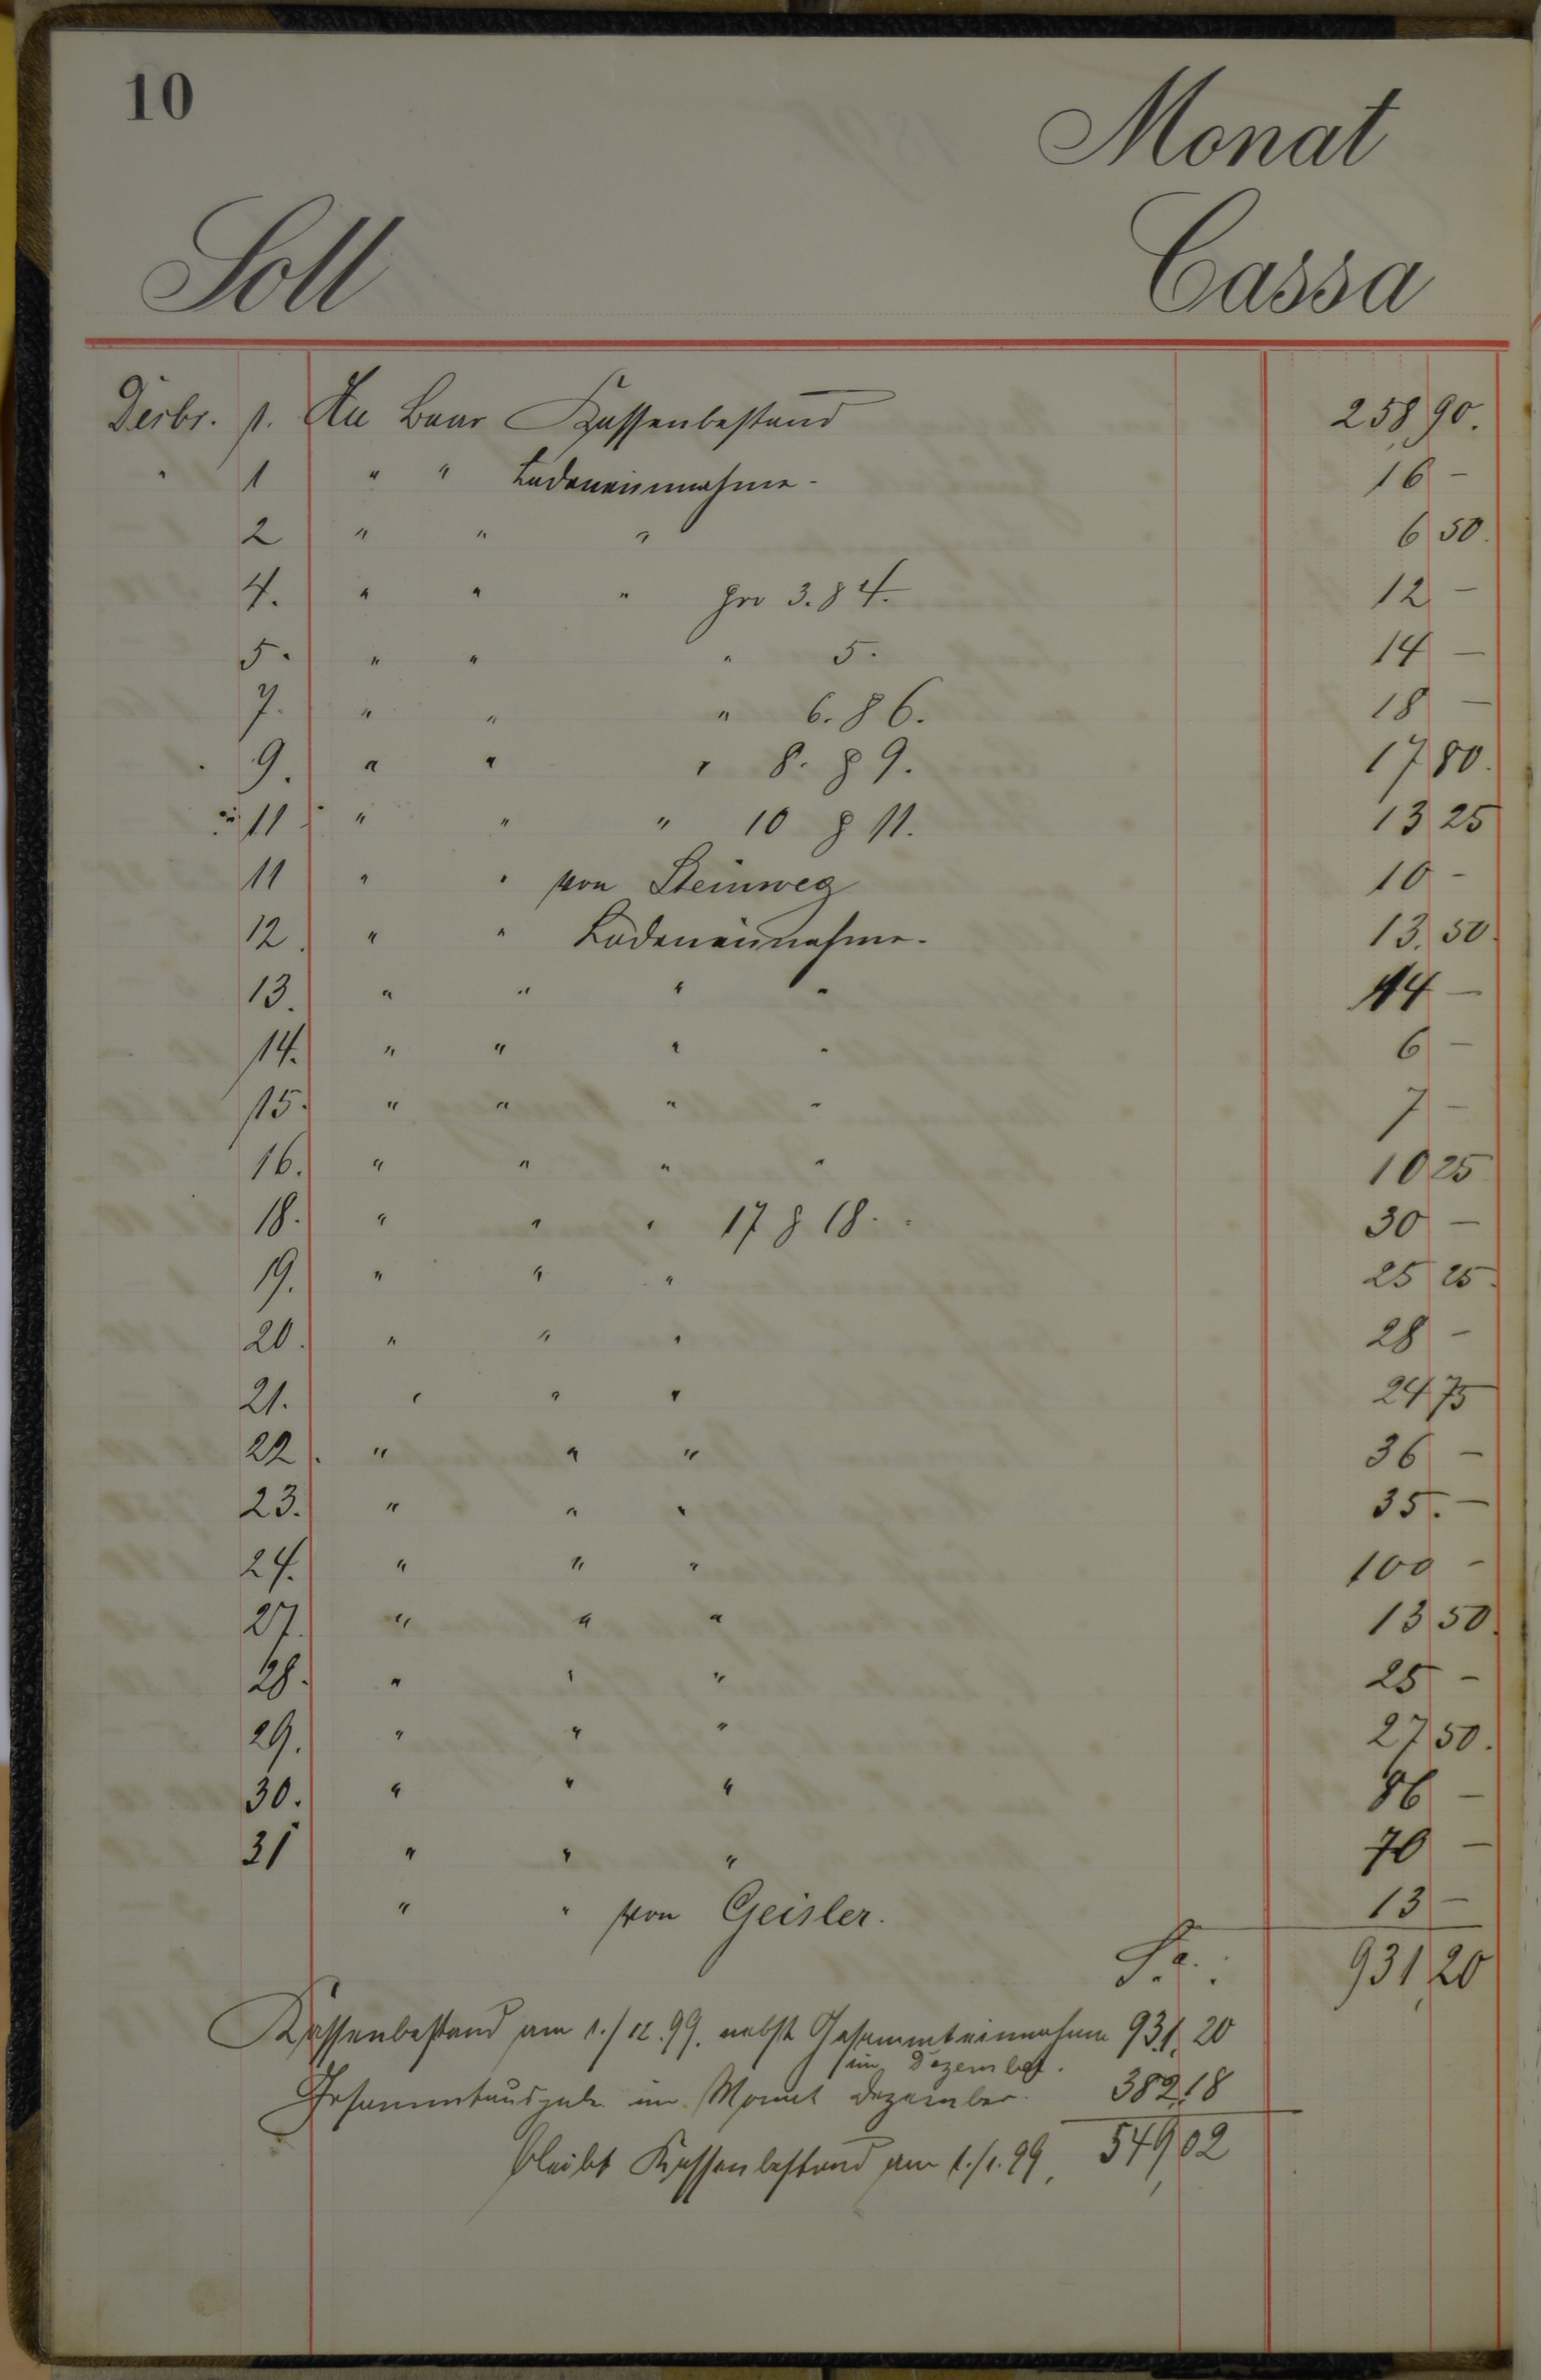 10
Monat
Soll Cassa
Dezbr. 1. An Baar Kassenbestand 258,90.
" 1 " " Ladeneinnahme - 16 -
2 " " " 6 50.
4. " " " pro 3. & 4. 12 -
5. " " " 5. 14 -
7. " " " 6. & 6. 18 -
9. " " " 8. & 9. 17 80.
11 " " " 10 & 11. 13 25
11 " " von Steinweg 10 -
12. " " Ladeneinnahme. 13. 50.
13. " " " " 14 -
14. " " " " 6 -
15. " " " " 7 -
16. " " " " 10 25
18. " " " 17 & 18. 30 -
19. " " " 25 25.
20. " " " 28 -
21. " " " 24 75
22. " " " 36 -
23. " " " 35. -
24. " " " 100 -
27. " " " 13 50.
28. " " " 25 -
29. " " " 27 50.
30. " " " 86 -
31 " " " 70 -
" " von Geisler. 13 -
931,20
Kassenbestand am 1./12.99. nebst Gesammteinnahme 931,20
im Dezember.
Gesammtausgabe im Monat Dezember. 382,18
bleibt Kassenbestand am 1./1.99, 549,02